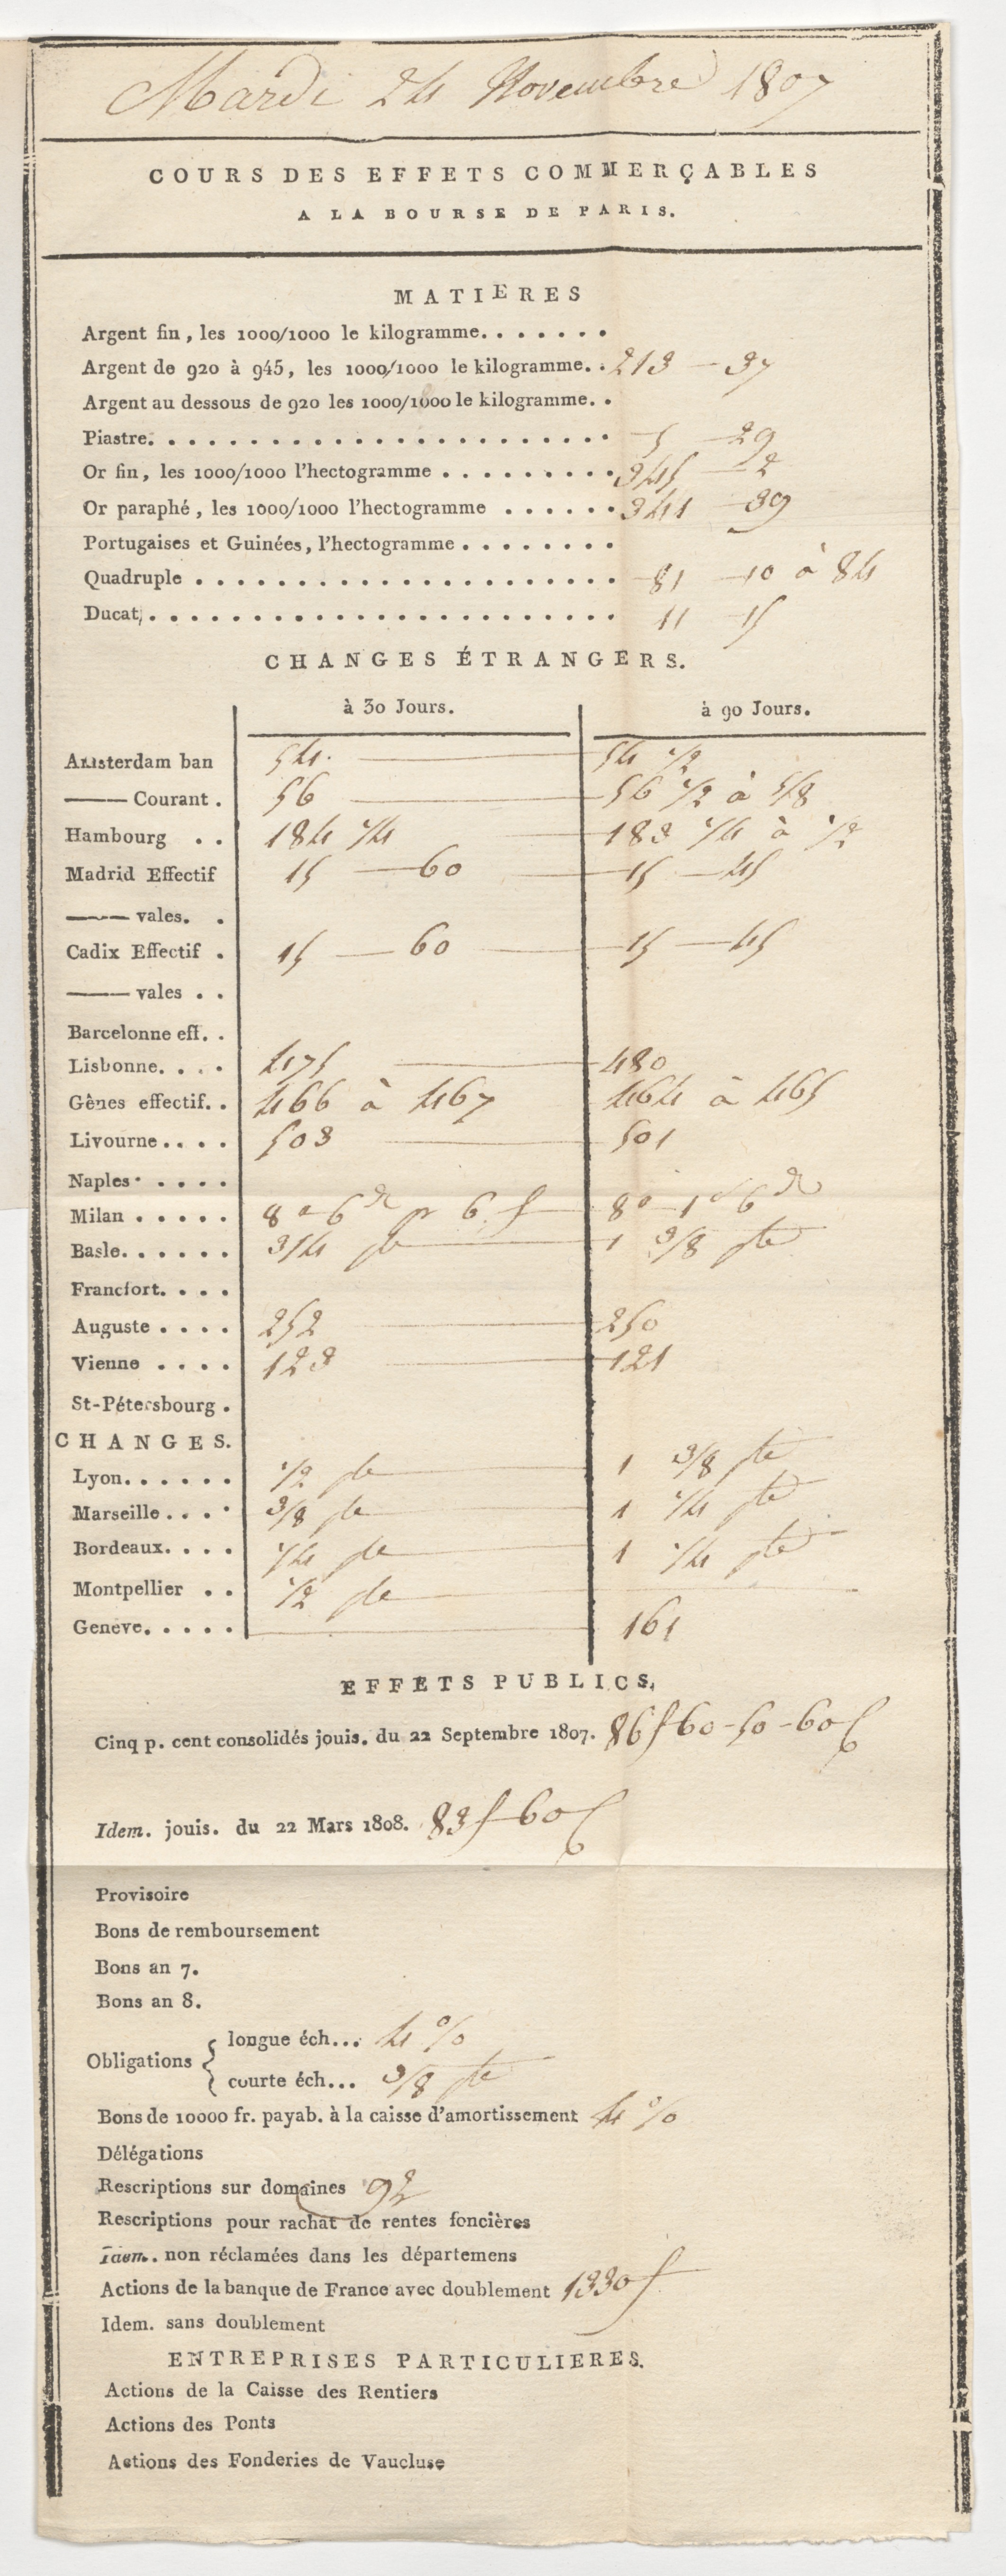 Mardi 24 Novembre 1807
COURS DES EFFETS COMMERÇABLES
A LA BOURSE DE PARIS.
MATIERES
Argent fin, les 1000/1000 le kilogramme. . . . . . .
Argent de 920 à 945, les 1000/1000 le kilogramme. . 213 — 37
Argent au dessous de 920 les 1000/1000 le kilogramme. .
Piastre. . . . . . . . . . . . . . . . . . . . . . . 5 — 29
Or fin, les 1000/1000 l'hectogramme . . . . . . . . . 345 — 2
Or paraphé, les 1000/1000 l'hectogramme . . . . . . 341 — 39
Portugaises et Guinées, l'hectogramme . . . . . . . .
Quadruple . . . . . . . . . . . . . . . . . . . . . 81 — 10 à 84
Ducat, . . . . . . . . . . . . . . . . . . . . . . . 11 — 15
CHANGES ÉTRANGERS.
à 30 Jours. à 90 Jours.
Amsterdam ban 54. — 54 1/2
—— Courant . 56 — 56 1/2 à 5/8
Hambourg . . 184 1/4 — 183 1/4 à 1/2
Madrid Effectif 15 — 60 — 15 — 45
—— vales. .
Cadix Effectif . 15 — 60 — 15 — 45
—— vales . .
Barcelonne eff. .
Lisbonne. . . . 475 — 480
Gênes effectif. . 466 à 467 464 à 465
Livourne . . . . 503 — 501
Naples . . . . .
Milan . . . . . 8 s 6 d pr 6 f — 8 s 1 d 6 d
Basle. . . . . . 3/4 pte — 1 3/8 pte
Francfort. . . .
Auguste . . . . 252 — 250
Vienne . . . . 123 — 121
St-Pétersbourg .
CHANGES.
Lyon. . . . . . 1/2 pte — 1 3/8 pte
Marseille . . . . 3/8 pte — 1 1/4 pte
Bordeaux. . . . 1/4 pte — 1 1/4 pte
Montpellier . . 1/2 pte —
Geneve. . . . . — 161
EFFETS PUBLICS.
Cinq p. cent consolidés jouis. du 22 Septembre 1807. 86 f 60 - 50 - 60 c
Idem. jouis. du 22 Mars 1808. 83 f 60 c
Provisoire
Bons de remboursement
Bons an 7.
Bons an 8.
Obligations { longue éch... 4 %
courte éch... 3/8 pte
Bons de 10000 fr. payab. à la caisse d'amortissement 4 %
Délégations
Rescriptions sur domaines 92
Rescriptions pour rachat de rentes foncières
Idem. non réclamées dans les départemens
Actions de la banque de France avec doublement 1330 f
Idem. sans doublement
ENTREPRISES PARTICULIERES.
Actions de la Caisse des Rentiers
Actions des Ponts
Actions des Fonderies de Vaucluse